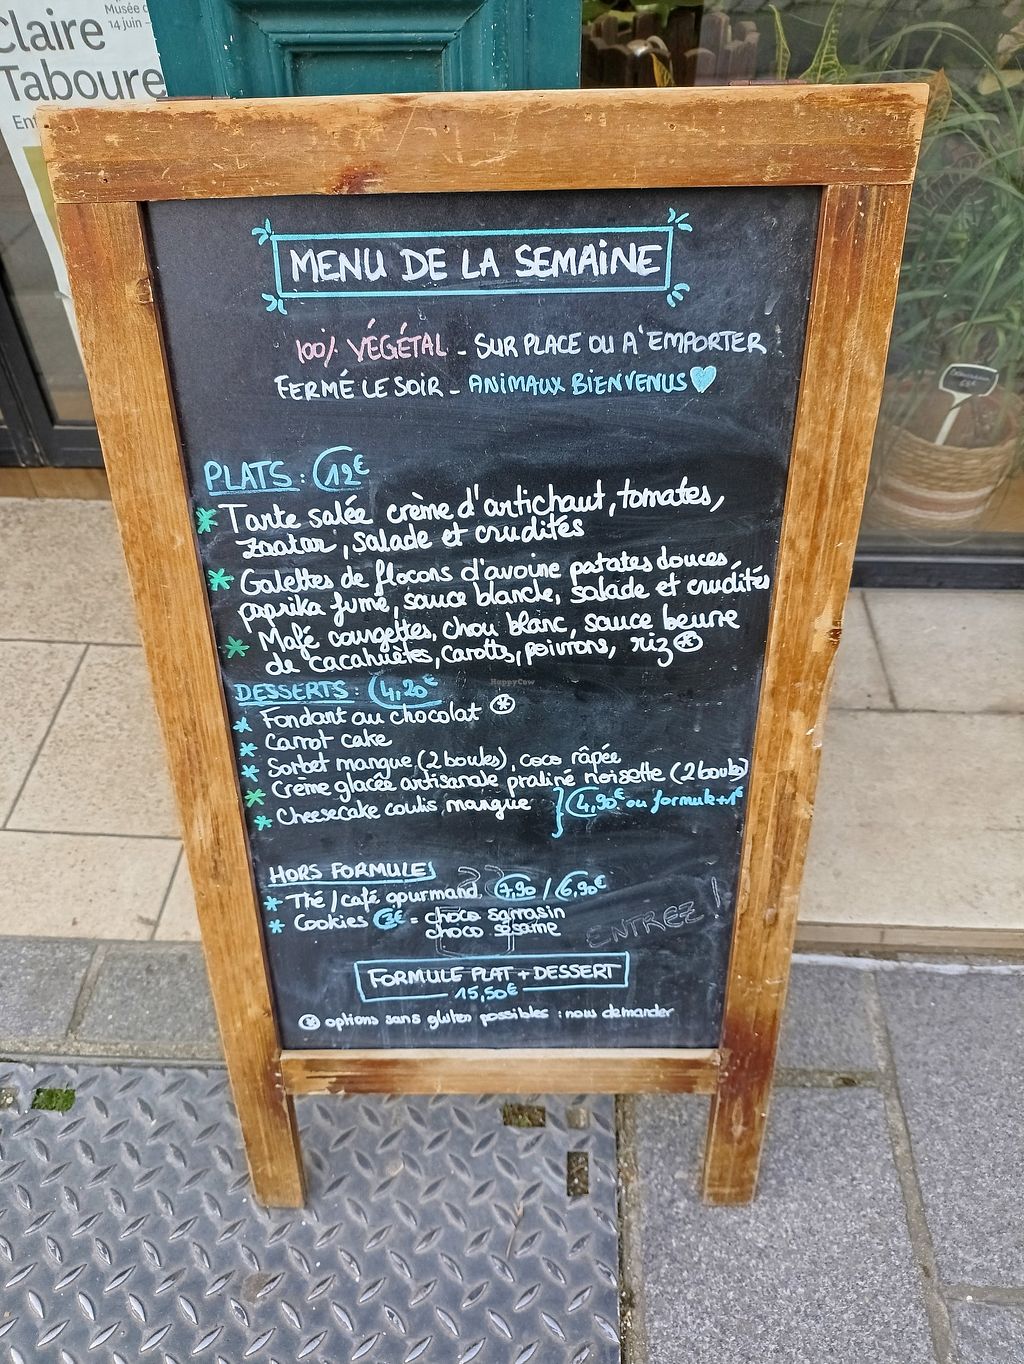 Claire
Taboure
Musée d
14 juin -
Ent
MENU DE LA SEMAINE
100% VÉGÉTAL - SUR PLACE OU A EMPORTER
FERMÉ LE SOIR - ANIMAUX BIENVENUS
PLATS : 12€
* Tarte salée crème d'artichaut, tomates,
zaatar, salade et crudités
* Galettes de flocons d'avoine patates douces,
paprika fumé, sauce blanche, salade et crudités
* Mafé courgettes, chou blanc, sauce beurre
de cacahuètes, carotts, poivrons, riz *
HappyCow
DESSERTS : 4,20€
* Fondant au chocolat *
* Carrot cake
* Sorbet mangue (2 boules), coco râpée
* Crème glacée artisanale praliné noisette (2 boules)
* Cheesecake coulis mangue } 4,90€ ou formule +1€
HORS FORMULE
* Thé / café gourmand 7,90 / 6,90€
* Cookies 3€ = choco sarrasin
choco sésame
ENTREZ !
FORMULE PLAT + DESSERT
15,50€
* options sans gluten possibles : nous demander